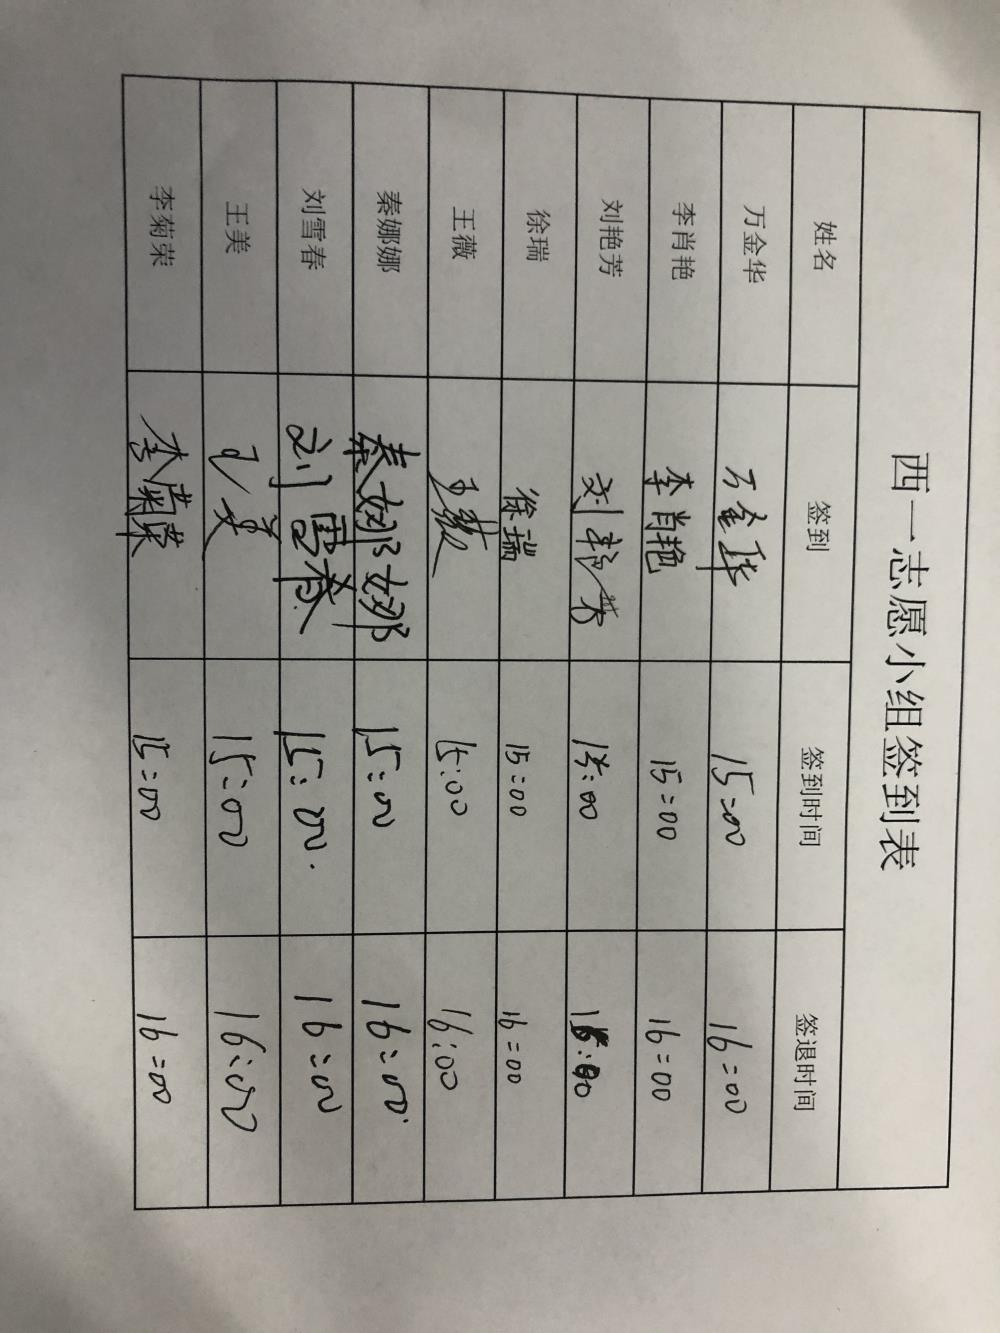 西一志愿小组签到表
姓名 签到 签到时间 签退时间
万金华 万金华 15:00 16:00
李肖艳 李肖艳 15:00 16:00
刘艳芳 刘艳芳 15:00 16:00
徐瑞 徐瑞 15:00 16:00
王薇 王薇 15:00 16:00
秦娜娜 秦娜娜 15:00 16:00
刘雪春 刘雪春 15:00 16:00
王美 王美 15:00 16:00
李菊荣 李菊荣 15:00 16:00